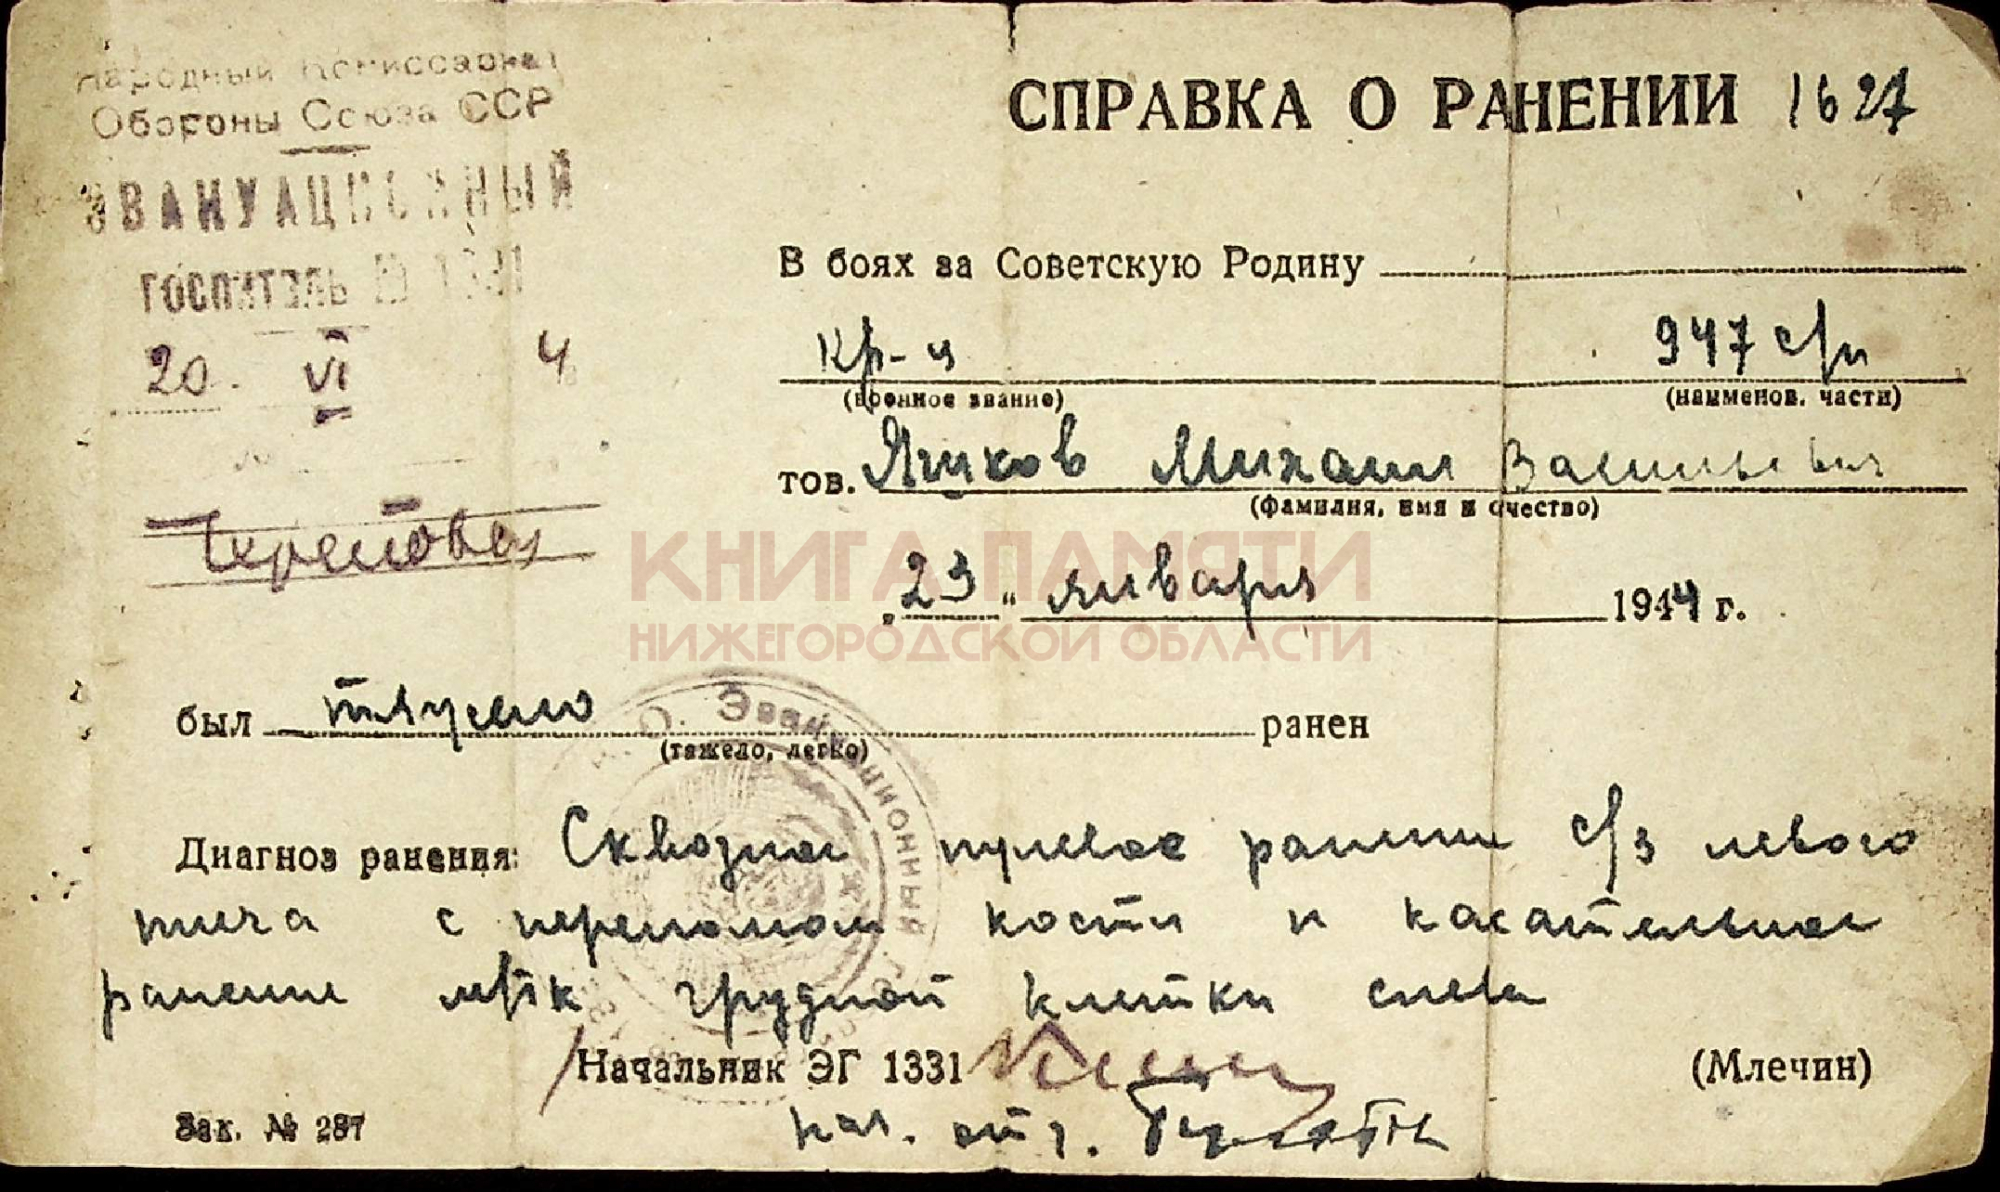 Народный Комиссариат
Обороны Союза ССР
ЭВАКУАЦИОННЫЙ
ГОСПИТАЛЬ № 1331
20 VI 4
СПРАВКА О РАНЕНИИ 1627
В боях за Советскую Родину
Кр-ц 947 с/п
(военное звание) (наименов. части)
тов. Яшков Михаил Васильевич
(фамилия, имя и очество)
КНИГА ПАМЯТИ
„23“ января 1944 г.
НИЖЕГОРОДСКОЙ ОБЛАСТИ
был тяжело ранен
(тяжело, легко)
О. Эвакуационный
Диагноз ранения: Сквозное пулевое ранение с/з левого
плеча с переломом кости и касательное
ранение м/тк грудной клетки слева
Начальник ЭГ 1331 (Млечин)
нач. отд.
Зак. № 287